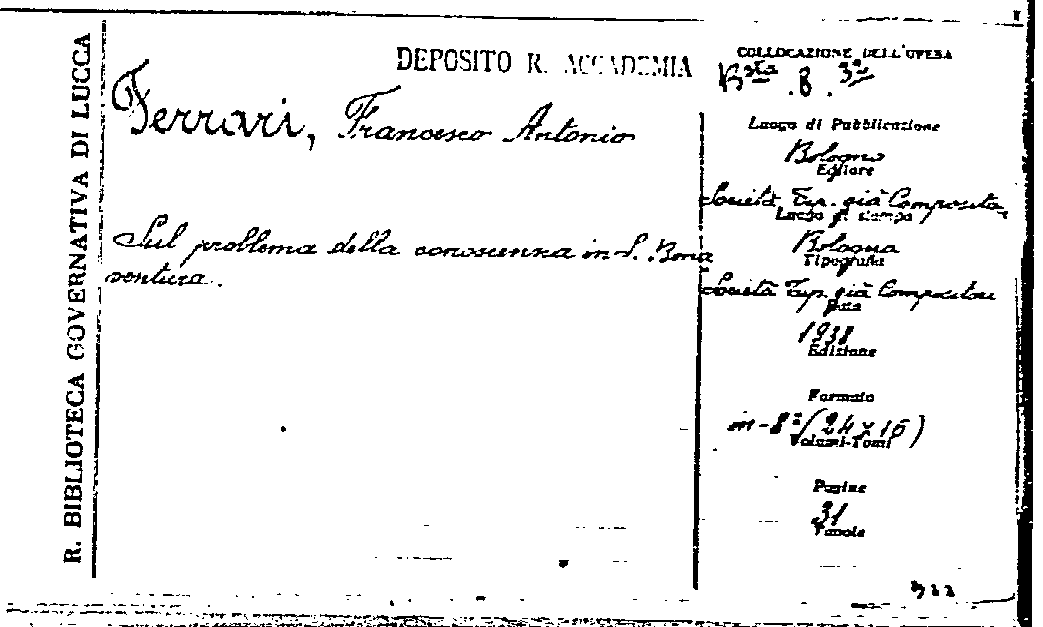 R. BIBLIOTECA GOVERNATIVA DI LUCCA
DEPOSITO R. ACCADEMIA
COLLOCAZIONE DELL'OPERA
Bsta . 8 . 3a
Ferrari, Francesco Antonio
Luogo di Pubblicazione
Bologna
Editore
Società Tip. già Compositori
Luogo di stampa
Bologna
Tipografia
Società Tip. già Compositori
Data
1938
Edizione
Sul problema della conoscenza in S. Bona
ventura.
Formato
in-8° (24x16)
Volumi-Tomi
Pagine
31
Tavole